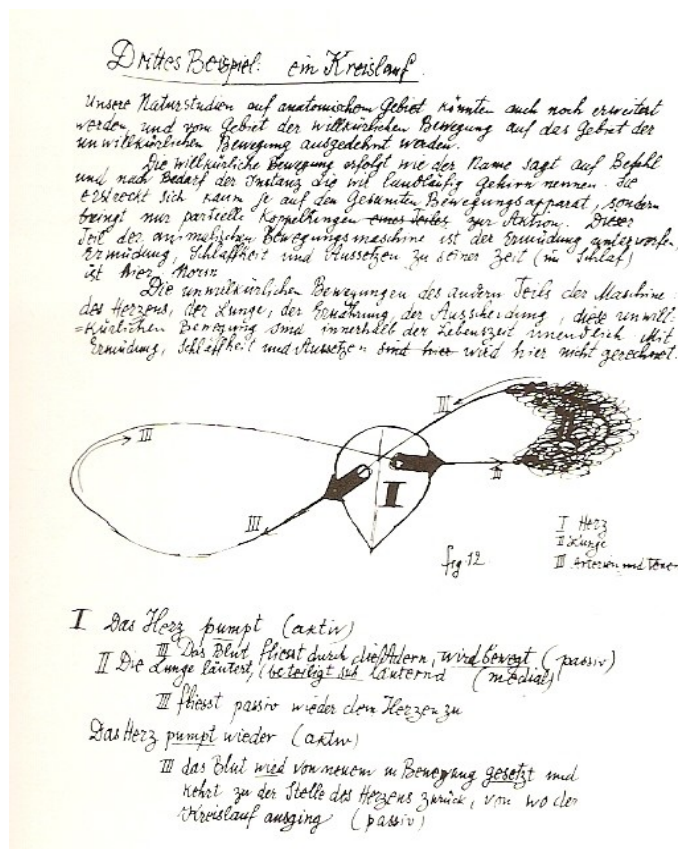 Drittes Beispiel: ein Kreislauf.
Unsere Naturstudien auf anatomischem Gebiet könnten auch noch erweitert
werden und vom Gebiet der willkürlichen Bewegung auf das Gebiet der
unwillkürlichen Bewegung ausgedehnt werden.
Die willkürliche Bewegung erfolgt wie der Name sagt auf Befehl
und nach Bedarf der Instanz die wir landläufig Gehirn nennen. Sie
erstreckt sich kaum je auf den gesamten Bewegungsapparat, sondern
bringt nur partielle Koppelungen eines Teiles zur Aktion. Dieser
Teil der animalischen Bewegungsmaschine ist der Ermüdung unterworfen,
Ermüdung, Schlaffheit und Aussetzen zu seiner Zeit (im Schlaf)
ist hier Norm
Die unwillkürlichen Bewegungen des andern Teils der Maschine:
des Herzens, der Lunge, der Ernährung, der Ausscheidung, diese unwill-
=kürlichen Bewegung sind innerhalb der Lebenszeit unendlich Mit
Ermüdung, Schlaffheit und Aussetzen sind hier wird hier nicht gerechnet.
III
III
III
II
I
I Herz
II Lunge
III Arterien und
fig 12.
I Das Herz pumpt (aktiv)
III Das Blut fliesst durch die Adern, wird bewegt (passiv)
II Die Lunge läutert, (beteiligt sich läuternd (medial)
III fliesst passiv wieder dem Herzen zu
Das Herz pumpt wieder (aktiv)
III das Blut wird von neuem in Bewegung gesetzt und
kehrt zu der Stelle des Herzens zurück, von wo der
Kreislauf ausging (passiv)